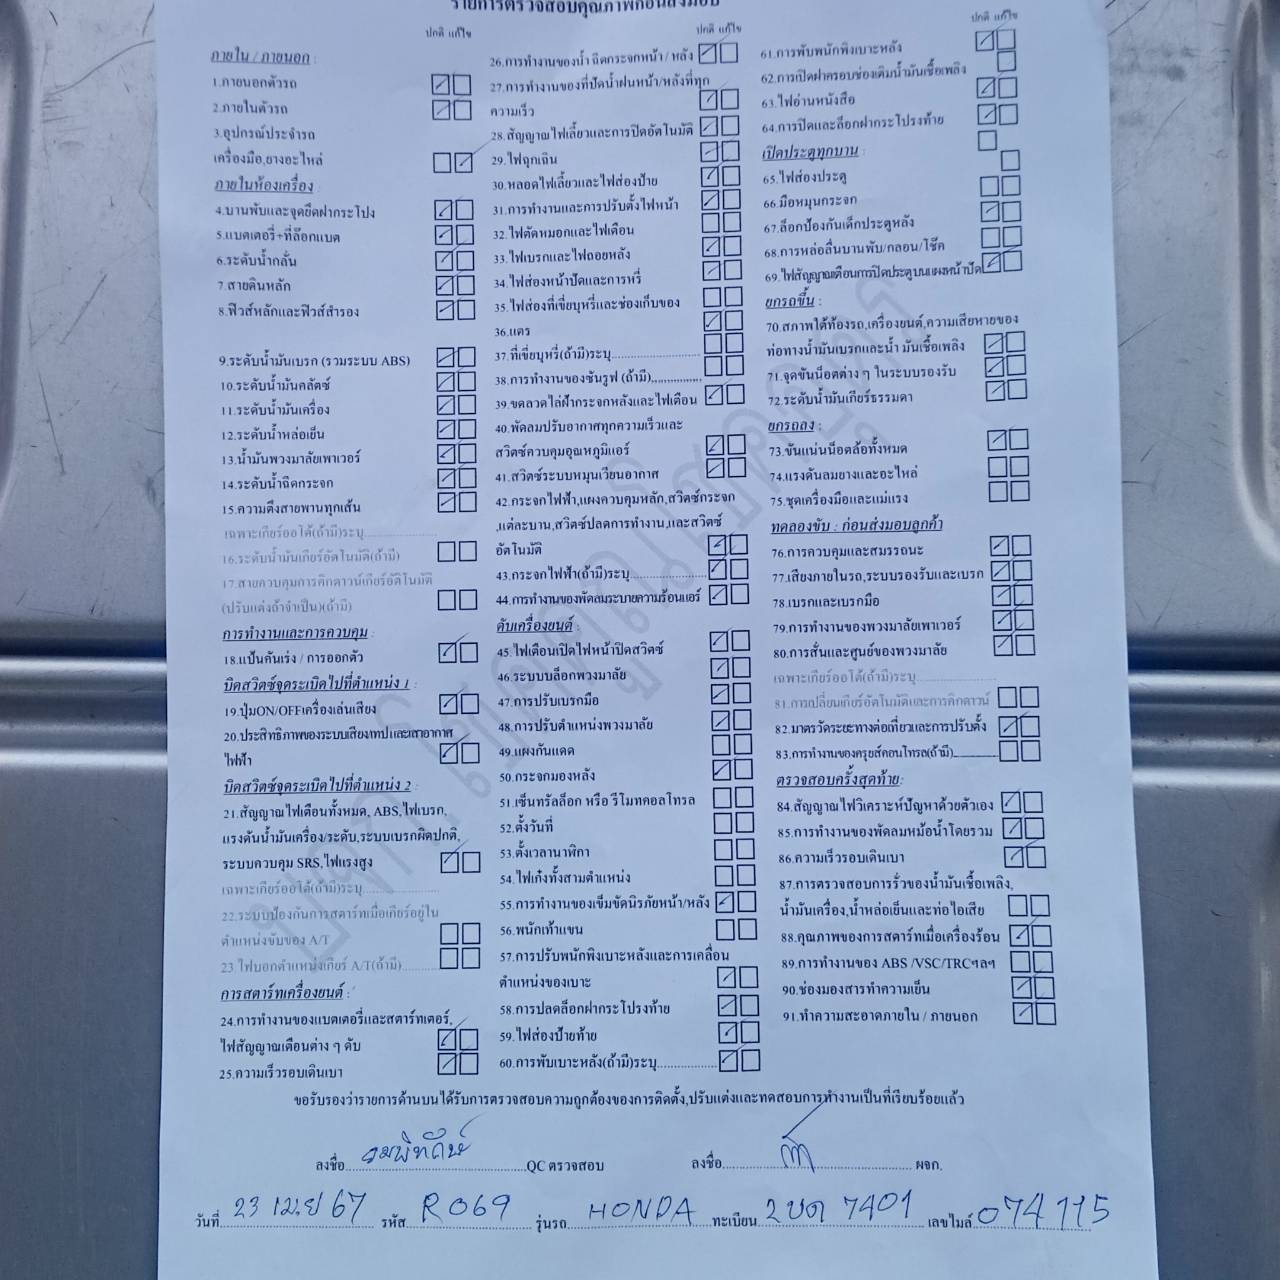 รายการตรวจสอบคุณภาพก่อนส่งมอบ
ปกติ แก้ไข
ภายใน / ภายนอก :
1.ภายนอกตัวรถ
2.ภายในตัวรถ
3.อุปกรณ์ประจำรถ
เครื่องมือ,ยางอะไหล่
ภายในห้องเครื่อง :
4.บานพับและจุดยึดฝากระโปง
5.แบตเตอรี่+ที่ล๊อกแบต
6.ระดับน้ำกลั่น
7.สายดินหลัก
8.ฟิวส์หลักและฟิวส์สำรอง
9.ระดับน้ำมันเบรก (รวมระบบ ABS)
10.ระดับน้ำมันคลัตช์
11.ระดับน้ำมันเครื่อง
12.ระดับน้ำหล่อเย็น
13.น้ำมันพวงมาลัยเพาเวอร์
14.ระดับน้ำฉีดกระจก
15.ความตึงสายพานทุกเส้น
เฉพาะเกียร์ออโต้(ถ้ามี)ระบุ
16.ระดับน้ำมันเกียร์อัตโนมัติ(ถ้ามี)
17.สายควบคุมการคิกดาวน์เกียร์อัตโนมัติ
(ปรับแต่งถ้าจำเป็น)(ถ้ามี)
การทำงานและการควบคุม :
18.แป้นคันเร่ง / การออกตัว
บิดสวิตช์จุดระเบิดไปที่ตำแหน่ง 1 :
19.ปุ่มON/OFFเครื่องเล่นเสียง
20.ประสิทธิภาพของระบบเสียงเทปและเสาอากาศ
ไฟฟ้า
บิดสวิตซ์จุดระเบิดไปที่ตำแหน่ง 2 :
21.สัญญาณไฟเตือนทั้งหมด, ABS,ไฟเบรก,
แรงดันน้ำมันเครื่อง/ระดับ,ระบบเบรกผิดปกติ,
ระบบควบคุม SRS,ไฟแรงสูง
เฉพาะเกียร์ออโต้(ถ้ามี)ระบุ
22.ระบบป้องกันการสตาร์ทเมื่อเกียร์อยู่ใน
ตำแหน่งขับของ A/T
23.ไฟบอกตำแหน่งเกียร์ A/T(ถ้ามี)
การสตาร์ทเครื่องยนต์ :
24.การทำงานของแบตเตอรี่และสตาร์ทเตอร์,
ไฟสัญญาณเตือนต่าง ๆ ดับ
25.ความเร็วรอบเดินเบา
ปกติ แก้ไข
26.การทำงานของน้ำ ฉีดกระจกหน้า / หลัง
27.การทำงานของที่ปัดน้ำฝนหน้า/หลังที่ทุก
ความเร็ว
28.สัญญาณไฟเลี้ยวและการปิดอัตโนมัติ
29.ไฟฉุกเฉิน
30.หลอดไฟเลี้ยวและไฟส่องป้าย
31.การทำงานและการปรับตั้งไฟหน้า
32.ไฟตัดหมอกและไฟเตือน
33.ไฟเบรกและไฟถอยหลัง
34.ไฟส่องหน้าปัดและการหรี่
35.ไฟส่องที่เขี่ยบุหรี่และช่องเก็บของ
36.แตร
37.ที่เขี่ยบุหรี่(ถ้ามี)ระบุ
38.การทำงานของซันรูฟ (ถ้ามี)
39.ขดลวดไล่ฝ้ากระจกหลังและไฟเตือน
40.พัดลมปรับอากาศทุกความเร็วและ
สวิตซ์ควบคุมอุณหภูมิแอร์
41.สวิตซ์ระบบหมุนเวียนอากาศ
42.กระจกไฟฟ้า,แผงควบคุมหลัก,สวิตซ์กระจก
,แต่ละบาน,สวิตซ์ปลดการทำงาน,และสวิตซ์
อัตโนมัติ
43.กระจกไฟฟ้า(ถ้ามี)ระบุ
44.การทำงานของพัดลมระบายความร้อนแอร์
ดับเครื่องยนต์ :
45.ไฟเตือนเปิดไฟหน้าปิดสวิตซ์
46.ระบบบล็อกพวงมาลัย
47.การปรับเบรกมือ
48.การปรับตำแหน่งพวงมาลัย
49.แผงกันแดด
50.กระจกมองหลัง
51.เซ็นทรัลล็อก หรือ รีโมทคอลโทรล
52.ตั้งวันที่
53.ตั้งเวลานาฬิกา
54.ไฟเก๋งทั้งสามตำแหน่ง
55.การทำงานของเข็มขัดนิรภัยหน้า/หลัง
56.พนักเท้าแขน
57.การปรับพนักพิงเบาะหลังและการเคลื่อน
ตำแหน่งของเบาะ
58.การปลดล็อกฝากระโปรงท้าย
59.ไฟส่องป้ายท้าย
60.การพับเบาะหลัง(ถ้ามี)ระบุ
ปกติ แก้ไข
61.การพับพนักพิงเบาะหลัง
62.การเปิดฝาครอบช่องเติมน้ำมันเชื้อเพลิง
63.ไฟอ่านหนังสือ
64.การปิดและล็อกฝากระโปรงท้าย
เปิดประตูทุกบาน :
65.ไฟส่องประตู
66.มือหมุนกระจก
67.ล็อกป้องกันเด็กประตูหลัง
68.การหล่อลื่นบานพับ/กลอน/โช๊ค
69.ไฟสัญญาณเตือนการปิดประตูบนแผงหน้าปัด
ยกรถขึ้น :
70.สภาพใต้ท้องรถ,เครื่องยนต์,ความเสียหายของ
ท่อทางน้ำมันเบรกและน้ำ มันเชื้อเพลิง
71.จุดขันน็อตต่าง ๆ ในระบบรองรับ
72.ระดับน้ำมันเกียร์ธรรมดา
ยกรถลง :
73.ขันแน่นน็อตล้อทั้งหมด
74.แรงดันลมยางและอะไหล่
75.ชุดเครื่องมือและแม่แรง
ทดลองขับ : ก่อนส่งมอบลูกค้า
76.การควบคุมและสมรรถนะ
77.เสียงภายในรถ,ระบบรองรับและเบรก
78.เบรกและเบรกมือ
79.การทำงานของพวงมาลัยเพาเวอร์
80.การสั่นและศูนย์ของพวงมาลัย
เฉพาะเกียร์ออโต้(ถ้ามี)ระบุ
81.การเปลี่ยนเกียร์อัตโนมัติและการคิกดาวน์
82.มาตรวัดระยะทางต่อเที่ยวและการปรับตั้ง
83.การทำงานของครุยส์คอนโทรล(ถ้ามี)
ตรวจสอบครั้งสุดท้าย:
84.สัญญาณไฟวิเคราะห์ปัญหาด้วยตัวเอง
85.การทำงานของพัดลมหม้อน้ำโดยรวม
86.ความเร็วรอบเดินเบา
87.การตรวจสอบการรั่วของน้ำมันเชื้อเพลิง,
น้ำมันเครื่อง,น้ำหล่อเย็นและท่อไอเสีย
88.คุณภาพของการสตาร์ทเมื่อเครื่องร้อน
89.การทำงานของ ABS /VSC/TRCฯลฯ
90.ช่องมองสารทำความเย็น
91.ทำความสะอาดภายใน / ภายนอก
ขอรับรองว่ารายการด้านบนได้รับการตรวจสอบความถูกต้องของการติดตั้ง,ปรับแต่งและทดสอบการทำงานเป็นที่เรียบร้อยแล้ว
ลงชื่อ QC ตรวจสอบ ลงชื่อ ผจก.
วันที่ 23 เม.ย 67 รหัส R069 รุ่นรถ HONDA ทะเบียน 2ขด 7401 เลขไมล์ 074115